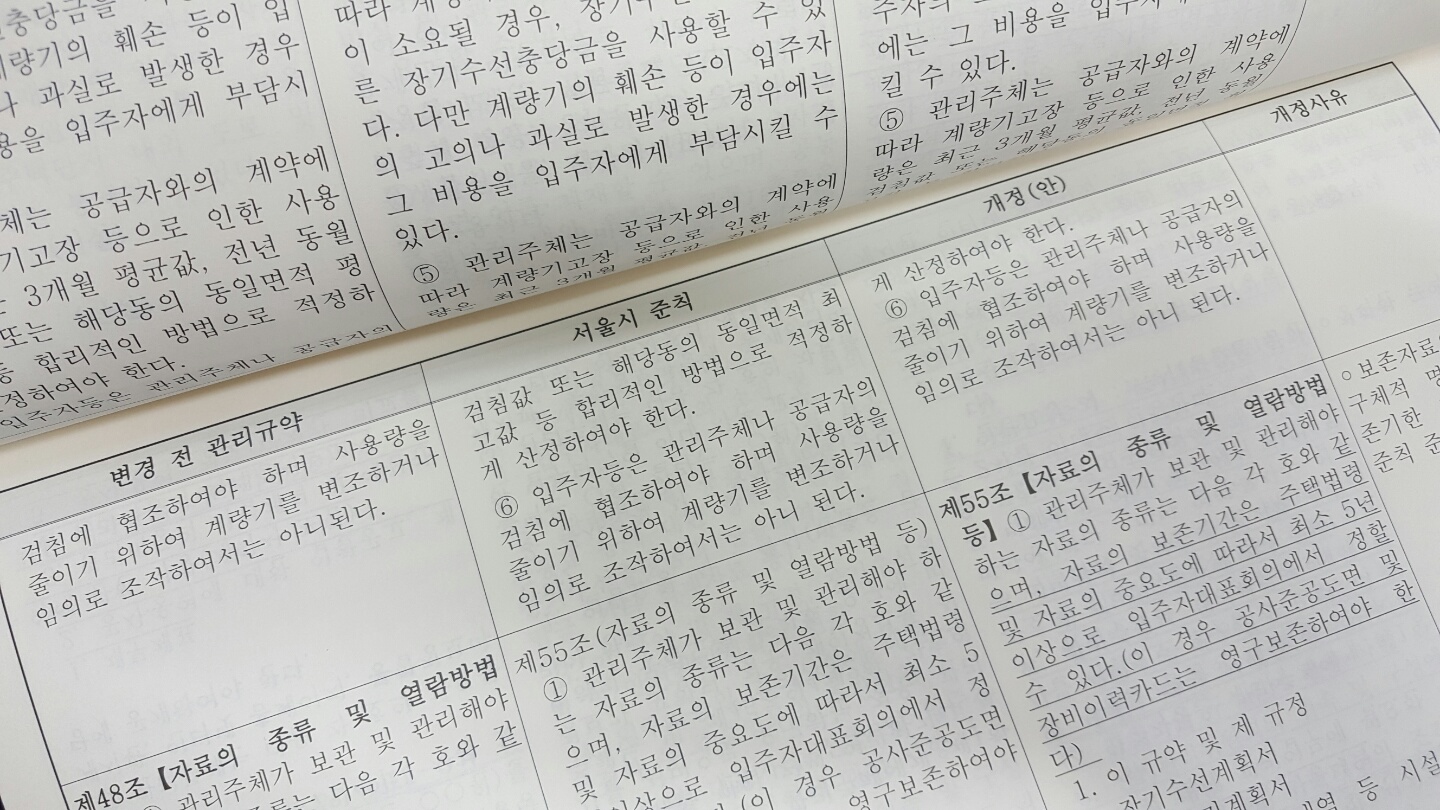 충당금을
계량기의 훼손 등이 입
나 과실로 발생한 경우
용을 입주자에게 부담시
체는 공급자와의 계약에
기고장 등으로 인한 사용
3개월 평균값, 전년 동월
또는 해당동의 동일면적 평
등 합리적인 방법으로 적정하
정하여야 한다.
입주자등은 관리주체나 공급자의
따라
이 소요될 경우,
른 장기수선충당금을 사용할 수 있
다. 다만 계량기의 훼손 등이 입주자
의 고의나 과실로 발생한 경우에는
그 비용을 입주자에게 부담시킬 수
있다.
⑤ 관리주체는 공급자와의 계약에
따라 계량기고장 등으로 인한 사용
량은 최근 3개월 평균값, 전년 동월
에는 그 비용을 입주자에게
킬 수 있다.
⑤ 관리주체는 공급자와의 계약에
따라 계량기고장 등으로 인한 사용
량은 최근 3개월 평균값, 전년 동월
검침값 또는 해당동의 동일면적
변경 전 관리규약
검침에 협조하여야 하며 사용량을
줄이기 위하여 계량기를 변조하거나
임의로 조작하여서는 아니된다.
제48조【자료의 종류 및 열람방법
관리주체가 보관 및 관리해야
다음 각 호와 같
서울시 준칙
검침값 또는 해당동의 동일면적 최
고값 등 합리적인 방법으로 적정하
게 산정하여야 한다.
⑥ 입주자등은 관리주체나 공급자의
검침에 협조하여야 하며 사용량을
줄이기 위하여 계량기를 변조하거나
임의로 조작하여서는 아니 된다.
제55조(자료의 종류 및 열람방법 등)
① 관리주체가 보관 및 관리해야 하
는 자료의 종류는 다음 각 호와 같
으며, 자료의 보존기간은 주택법령
및 자료의 중요도에 따라서 최소 5
이상으로 입주자대표회의에서 정
(이 경우 공사준공도면
영구보존하여야
개정(안)
게 산정하여야 한다.
⑥ 입주자등은 관리주체나 공급자의
검침에 협조하여야 하며 사용량을
줄이기 위하여 계량기를 변조하거나
임의로 조작하여서는 아니 된다.
제55조【자료의 종류 및 열람방법
등】① 관리주체가 보관 및 관리해야
하는 자료의 종류는 다음 각 호와 같
으며, 자료의 보존기간은 주택법령
및 자료의 중요도에 따라서 최소 5년
이상으로 입주자대표회의에서 정할
수 있다.(이 경우 공사준공도면 및
장비이력카드는 영구보존하여야 한
다)
1. 이 규약 및 제 규정
장기수선계획서
등 시설
개정사유
○보존자료의
구체적 명
존기한
준칙 준